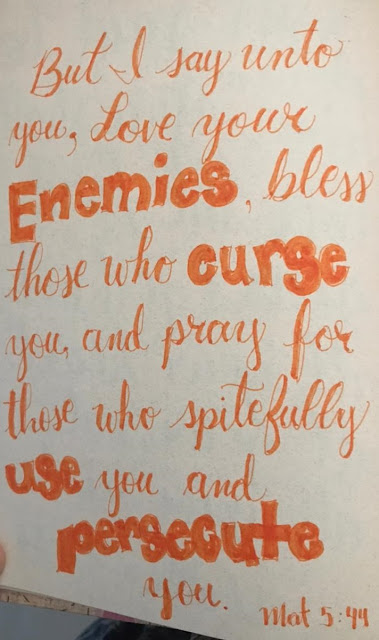 But I say unto
you, Love your
Enemies, bless
those who curse
you, and pray for
those who spitefully
use you and
persecute
you.
Mat 5:44